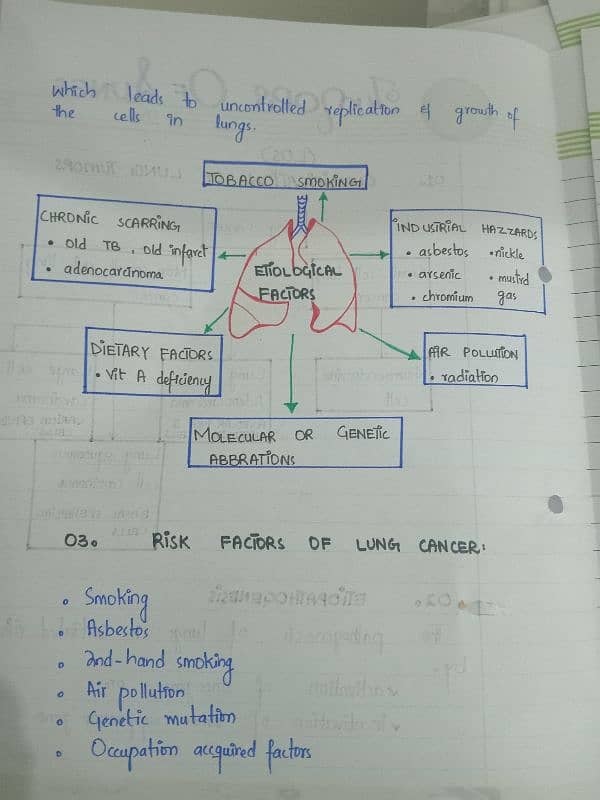 which leads to uncontrolled replication & growth of
the cells in lungs.
TOBACCO SMOKING
CHRONIC SCARRING
• old TB, old infarct
• adenocarcinoma
ETIOLOGICAL
FACTORS
INDUSTRIAL HAZZARDS
• asbestos • nickle
• arsenic • mustrd
• chromium gas
DIETARY FACTORS
• Vit A deficiency
AIR POLLUTION
• radiation
MOLECULAR OR GENETIC
ABBRATIONS
03. RISK FACTORS OF LUNG CANCER:
• Smoking
• Asbestos
• 2nd-hand smoking
• Air pollution
• Genetic mutation
• Occupation accquired factors